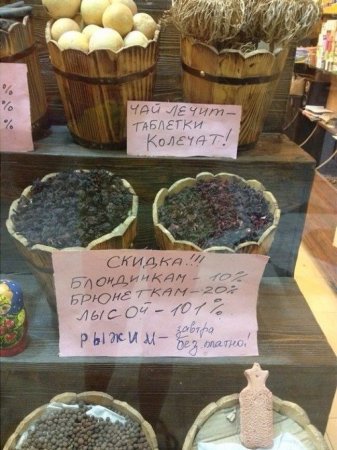 %
%
ЧАЙ ЛЕЧИТ-
-ТАБЛЕТКИ
КОЛЕЧАТ!
СКИДКА!!!
БЛОНДИНКАМ - 10%
БРЮНЕТКАМ - 20%
ЛЫСОЙ - 101%
РЫЖИМ - завтра
бесплатно!